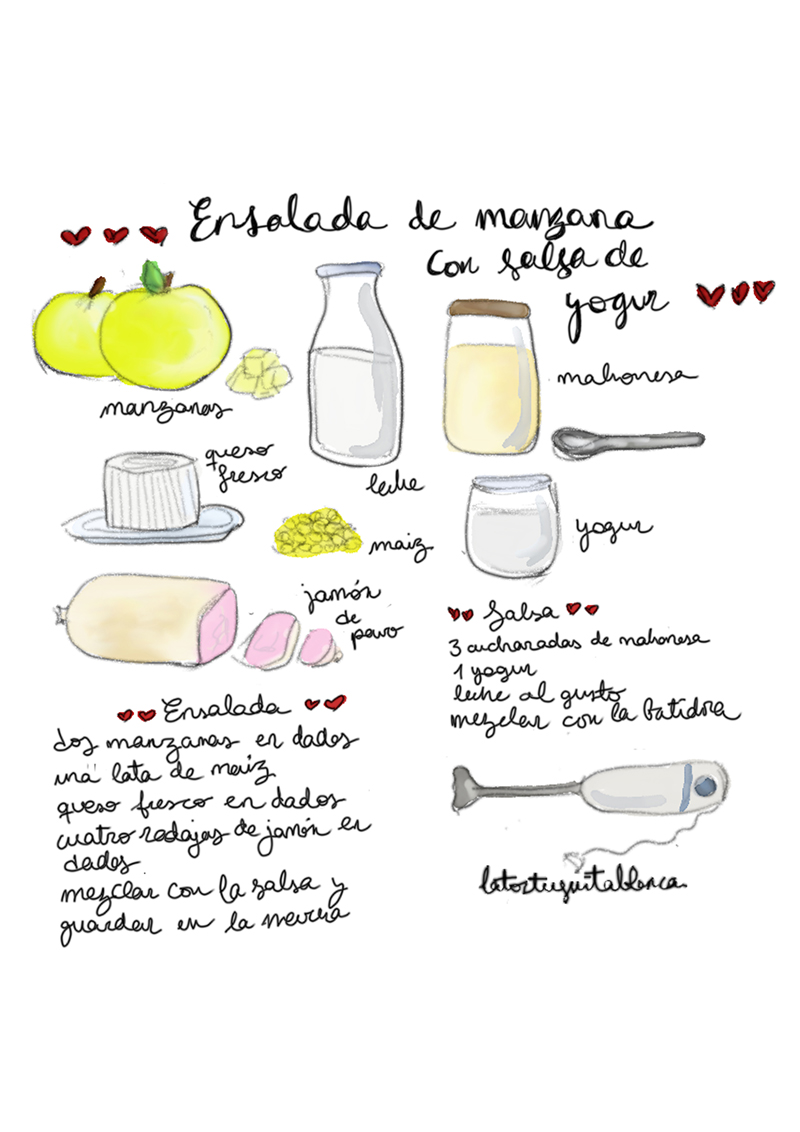 Ensalada de manzana
con salsa de
yogur
manzanas
mahonesa
queso
fresco
leche
maiz
yogur
jamón
de
pavo
Salsa
3 cucharadas de mahonesa
1 yogur
leche al gusto
mezclar con la batidora
Ensalada
dos manzanas en dados
una lata de maiz
queso fresco en dados
cuatro rodajas de jamón en
dados
mezclar con la salsa y
guardar en la nevera
latortuguitablanca.